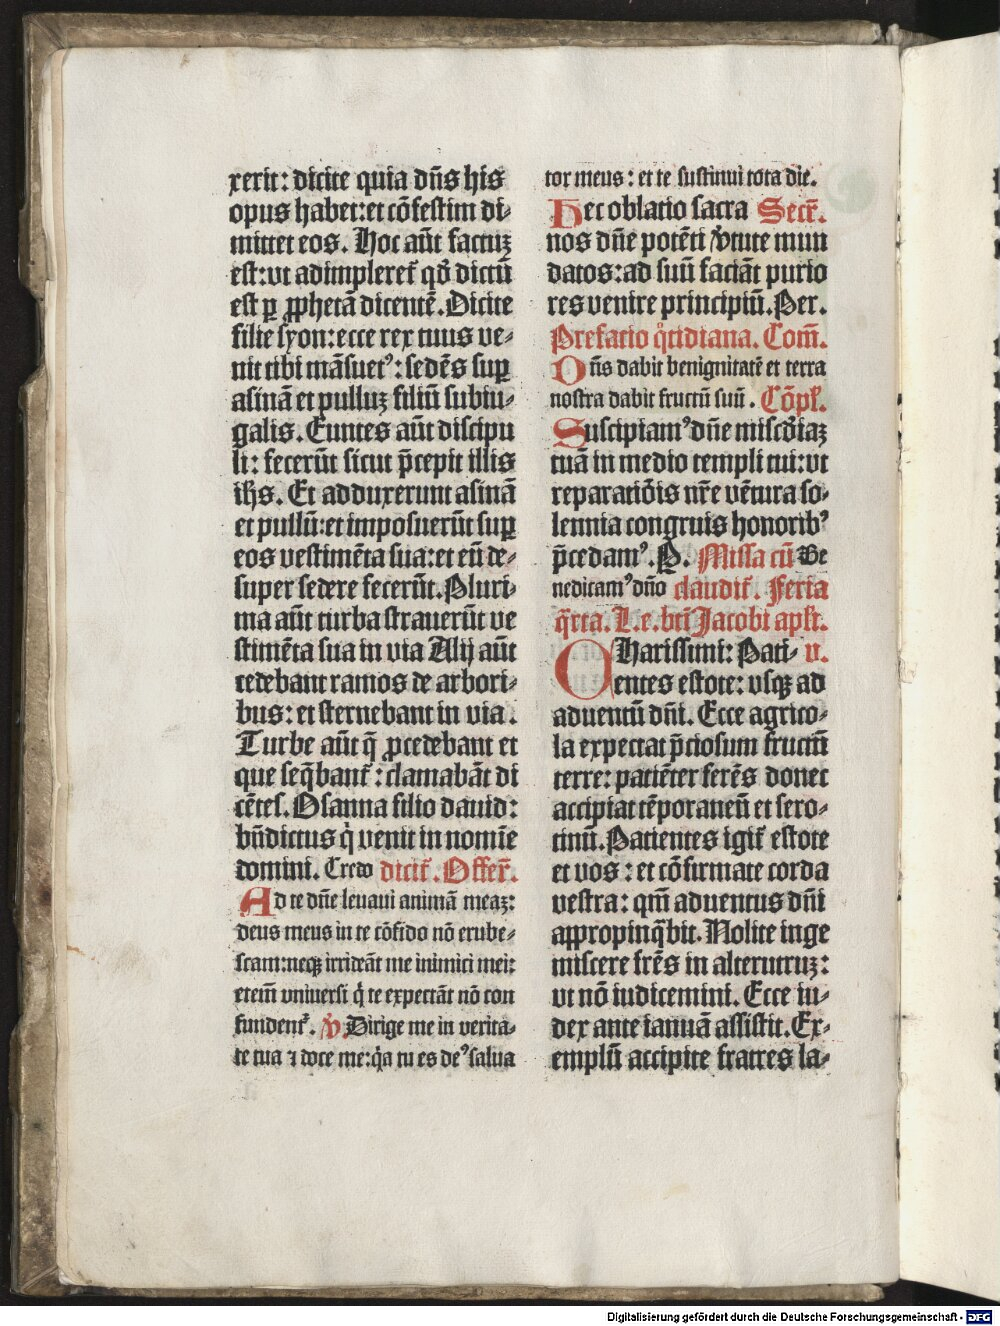 xerit: dicite quia dn̄s his
opus habet: et cōfestim di⸗
mittet eos. Hoc aūt factuꝫ
est: vt adimpleret᷑ qd̕ dictū
est ꝑ ꝓphetā dicentē. Dicite
filie syon: ecce rex tuus ve⸗
nit tibi māsuetꝰ: sedēs suꝑ
asinā et pulluꝫ filiū subiu⸗
galis. Euntes aūt discipu
li: fecerūt sicut p̄cepit illis
ihs̄. Et adduxerunt asinā
et pullū: et imposuerūt suꝑ
eos vestimēta sua: et eū de⸗
super sedere fecerūt. Pluri⸗
ma aūt turba strauerūt ve
stimēta sua in via Alij aūt
cedebant ramos de arbori⸗
bus: et sternebant in via.
Turbe aūt q̄ ꝓcedebant et
que seq̄bant᷑: clamabāt di
cētes. Osanna filio dauid:
bn̄dictus q̇ venit in nomīe
domini. Credo dicit᷑. Offer̄.
Ad te dn̄e leuaui animā meaꝫ:
deus meus in te cōfido nō erube⸗
scam: neqꝫ irrideāt me inimici mei:
etem̄ vniuersi q̇ te expectāt nō con
fundent᷑. v̕. Dirige me in verita⸗
te tua ⁊ doce me: q̇a tu es deꝰ salua
tor meus: et te sustinui tota die.
Hec oblatio sacra Secr̄.
nos dn̄e potēti v̕tute mun
datos: ad suū faciāt purio
res venire principiū. Per.
Prefatio q̊tidiana. Com̄.
Dn̄s dabit benignitatē et terra
nostra dabit fructū suū. Cōpl̕.
Suscipiamꝰ dn̄e mīscd̕iaꝫ
tuā in medio templi tui: vt
reparatiōis nr̄e vētura so⸗
lennia congruis honoribꝰ
p̄cedamꝰ. P. Missa cū Be
nedicamꝰ dn̄o claudit᷑. Feria
q̄rta. L. e. bt̄i Jacobi apl̕i.
CHarissimi: Pati⸗ v.
entes estote: vsqꝫ ad
aduentū dn̄i. Ecce agrico⸗
la expectat p̄ciosum fructū
terre: patiēter ferēs donec
accipiat tēporaneū et sero⸗
tinū. Patientes igit᷑ estote
et vos: et cōfirmate corda
vestra: qm̄ aduentus dn̄i
appropinq̄bit. Nolite inge
miscere fr̄es in alterutruꝫ:
vt nō iudicemini. Ecce iu⸗
dex ante ianuā assistit. Ex⸗
emplū accipite fratres la⸗
Digitalisierung gefördert durch die Deutsche Forschungsgemeinschaft - DFG